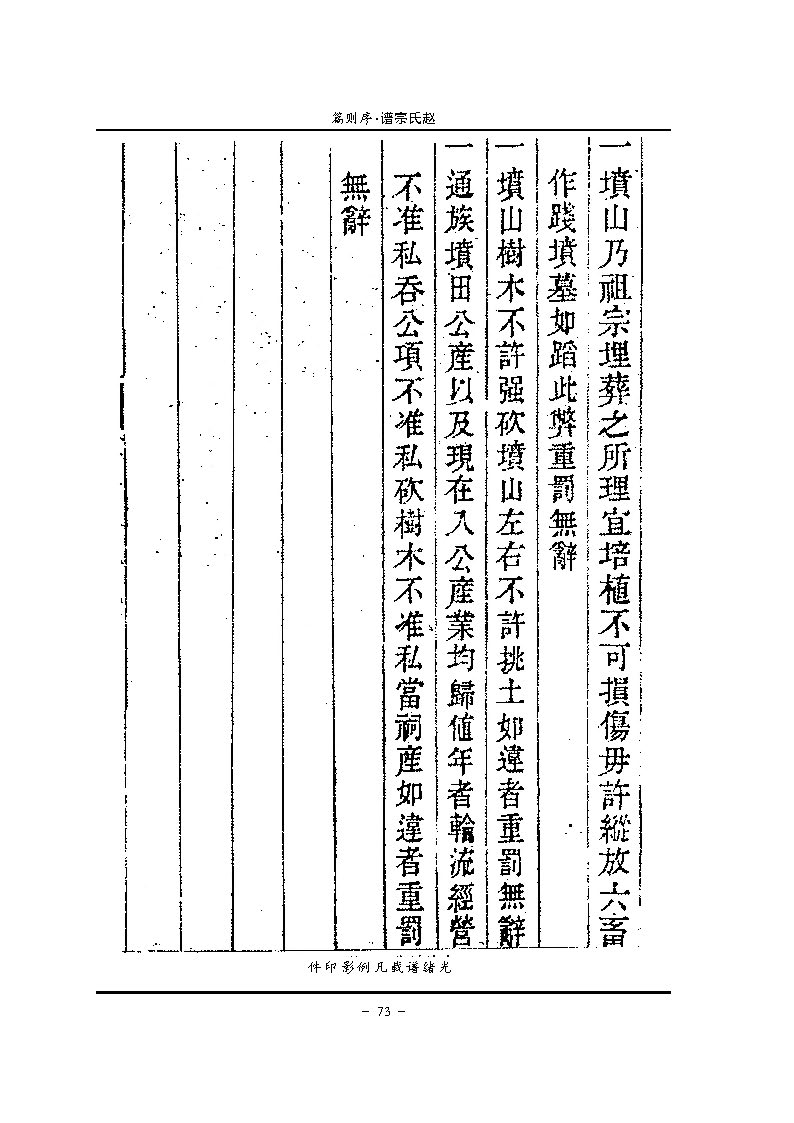 赵氏宗谱·序则篇
一墳山乃祖宗埋葬之所理宜培植不可損傷毋許縱放六畜
作踐墳墓如蹈此弊重罰無辭
一墳山樹木不許强砍墳山左右不許挑土如違者重罰無辭
一通族墳田公産以及現在入公産業均歸値年者輪流經營
不准私吞公項不准私砍樹木不准私當祠産如違者重罰
無辭
光绪谱载凡例影印件
- 73 -